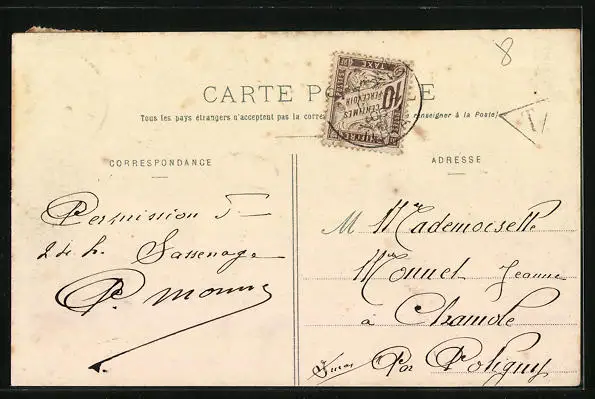 8
CARTE PO LE
Tous les pays étrangers n'acceptent pas la corres e renseigner à la Poste)
T
10
CENTIMES
PERCEVOIR
TAXE
CORRESPONDANCE
Permission
24 h. Sassenage
P. Monnet
ADRESSE
M Mademoiselle
Monnet Jeanne
à Chamole
Par Poligny